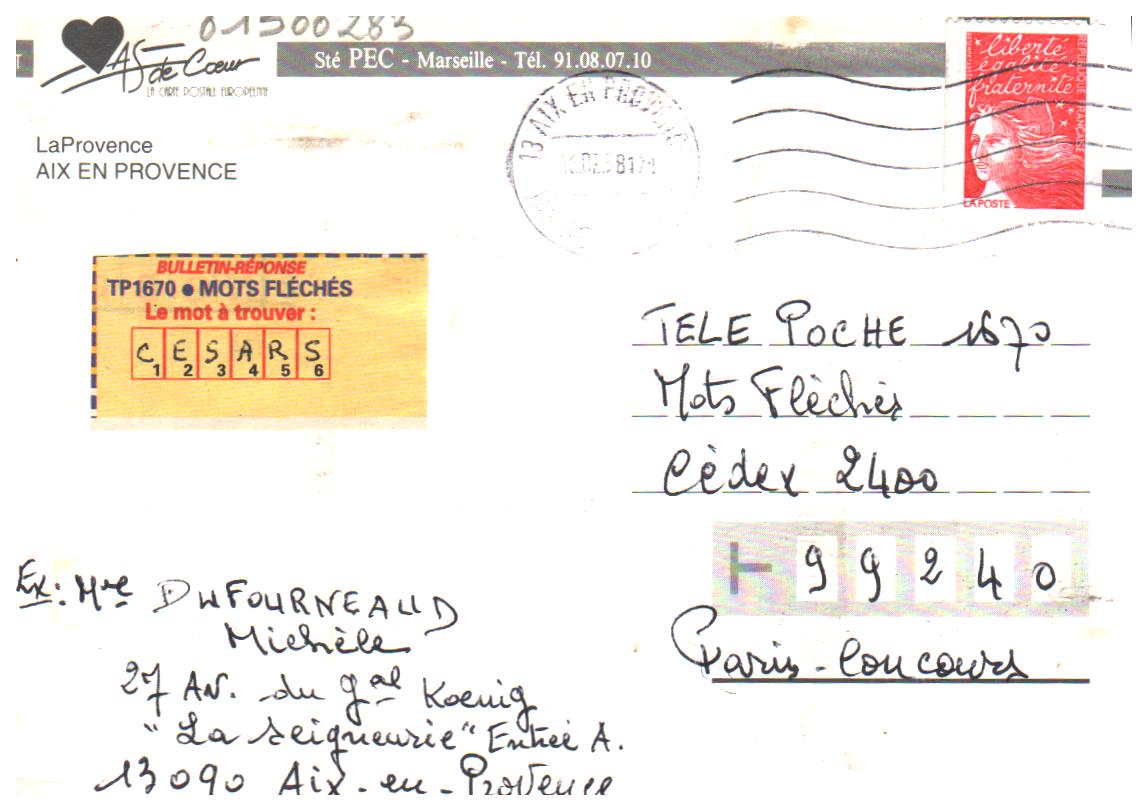 01500283
AS de Cœur
LA CARTE POSTALE EUROPÉENNE
Sté PEC - Marseille - Tél. 91.08.07.10
LaProvence
AIX EN PROVENCE
13 AIX EN PROVENCE
liberté
égalité
fraternité
RÉPUBLIQUE FRANÇAISE
LA POSTE
BULLETIN-RÉPONSE
TP1670 ● MOTS FLÉCHÉS
Le mot à trouver :
C E S A R S
1 2 3 4 5 6
TELE POCHE 1670
Mots Flèchés
Cèdex 2400
99240
Paris-Concours
Ex: Mme DUFOURNEAUD
Michèle
27 AV. du gal Koenig
"La Seigneurie" Entrée A.
13090 Aix-en-Provence